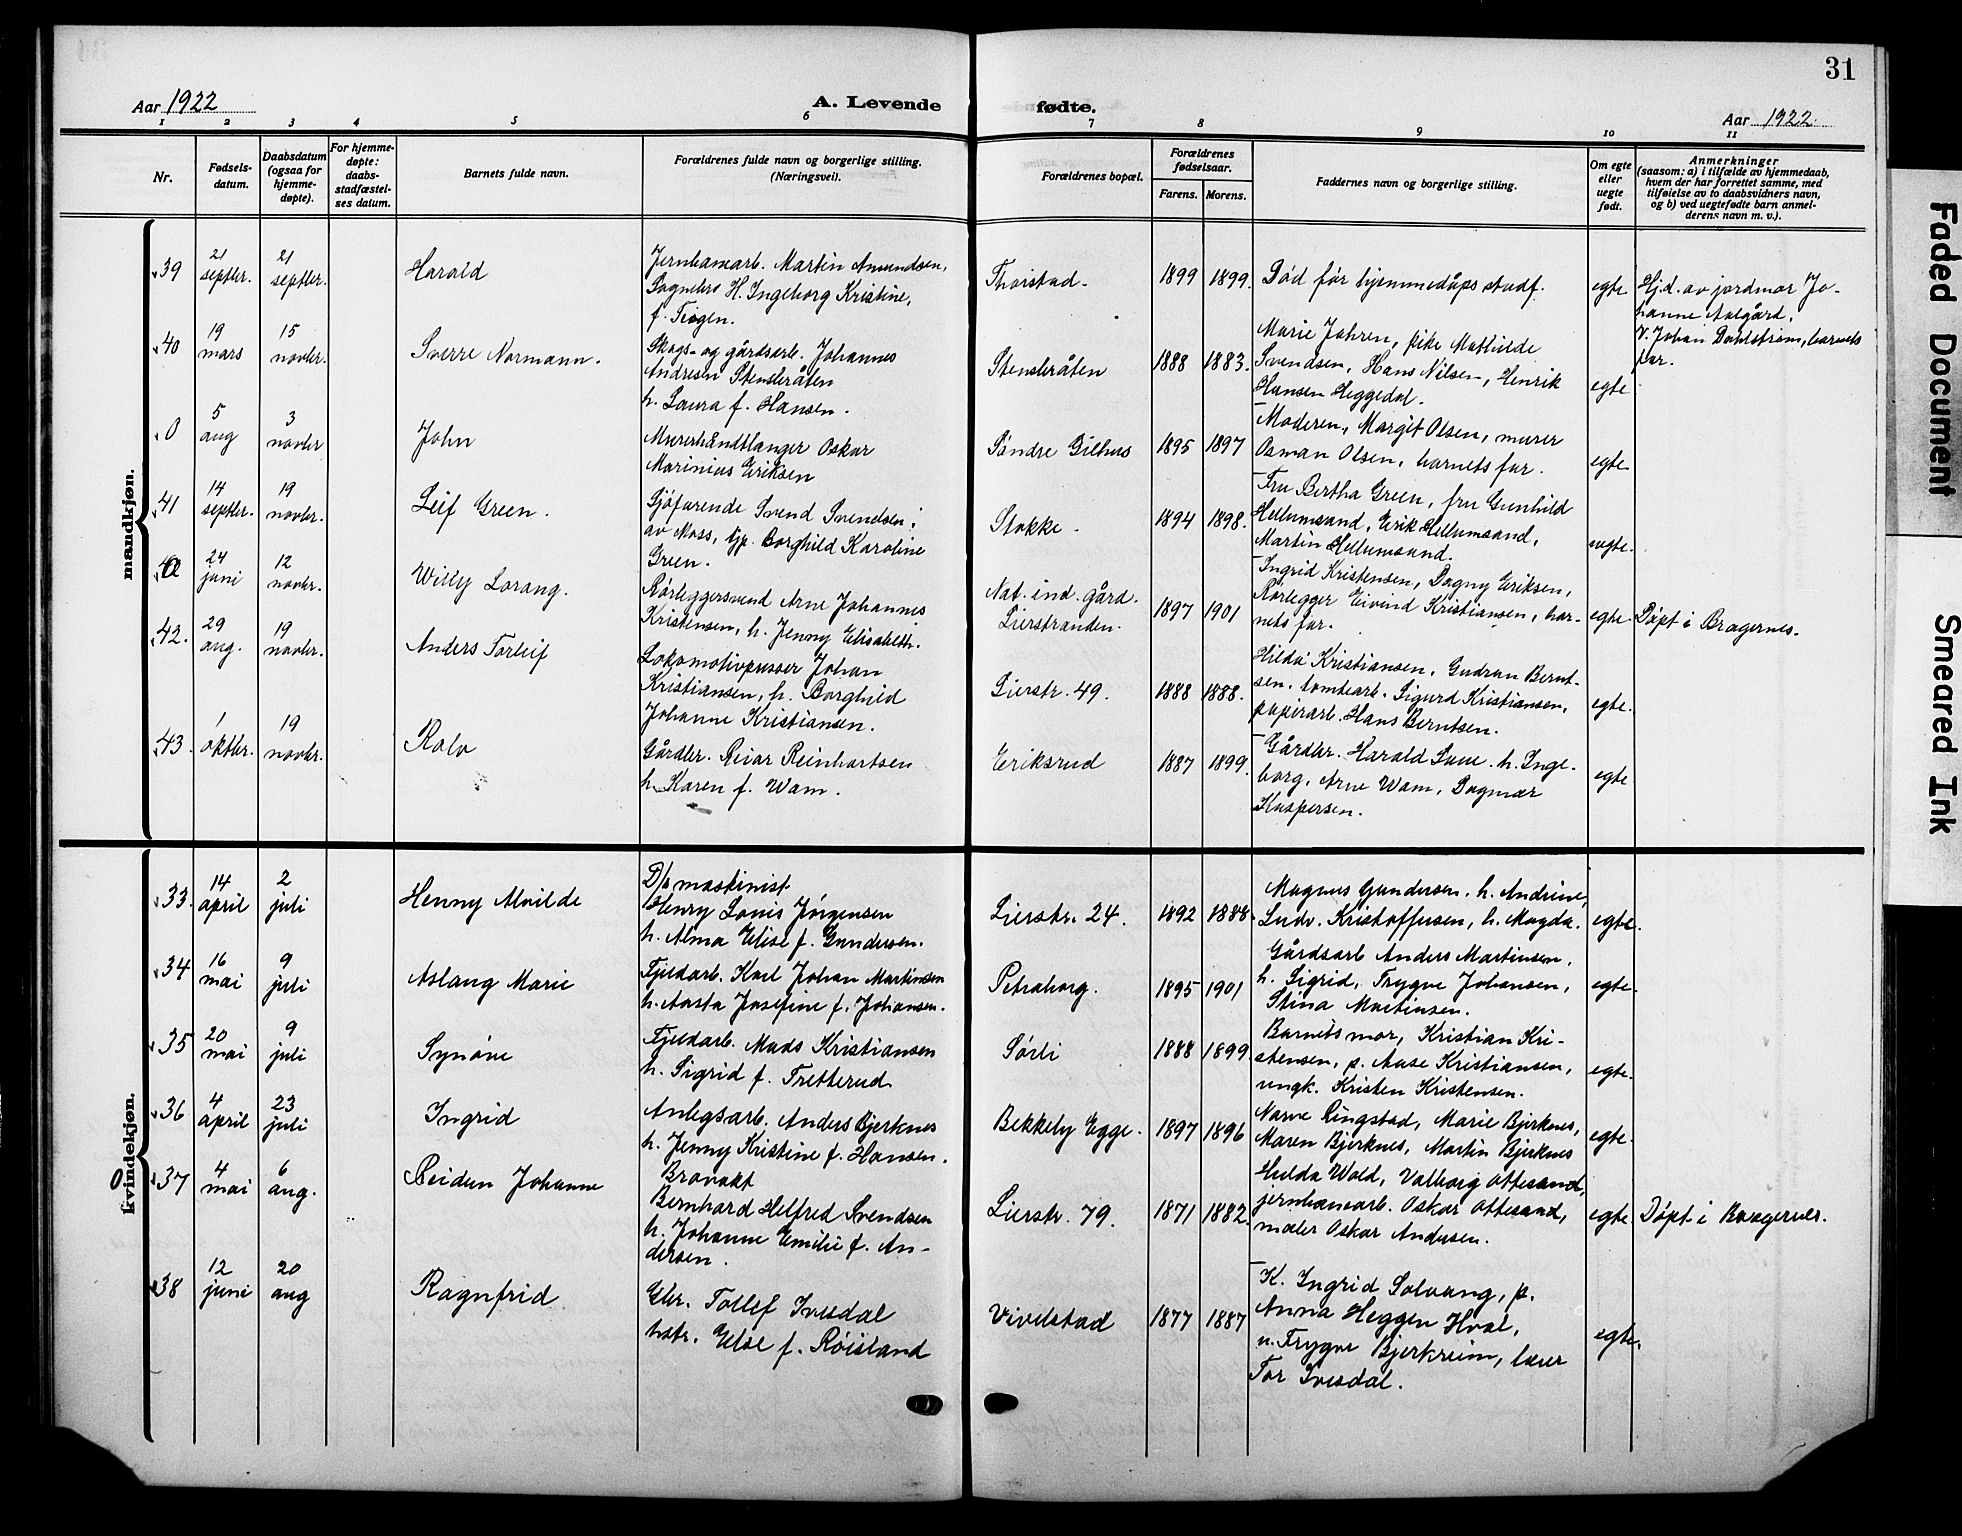 31
Aar 1922
A. Levende
fødte.
Aar 1922
1 2 3 4 5 6 7 8 9 10 11
Nr.
Fødsels-
datum.
Daabsdatum
(ogsaa for
hjemme-
døpte).
For hjemme-
døpte:
daabs-
stadfæstel-
ses datum.
Barnets fulde navn.
Forældrenes fulde navn og borgerlige stilling.
(Næringsvei).
Forældrenes bopæl.
Forældrenes
fødselsaar.
Farens. Morens.
Faddernes navn og borgerlige stilling.
Om egte
eller
uegte
født.
Anmerkninger
(saasom: a) i tilfælde av hjemmedaab,
hvem der har forrettet samme, med
tilføielse av to daabsvidners navn,
og b) ved uegtefødte barn anmel-
derens navn m. v.).
mandkjøn.
39
21
septbr.
21
septbr.
Harald
Jernbanearb. Martin Amundsen,
H. Ingeborg Kristine,
Thorstad.
1899 1899.
Død før hjemmedåps stadf.
egte
Hj.d. av jordmor Jo-
hanne Aalgård.
V. Johan Dahlstrøm, barnets
far.
40
19
mars
15
novbr.
Sverre Normann.
Skogs- og gårdsarb. Johannes
Andresen Stensbråten
h. Laura f. Hansen.
Stensbråten
1888 1883.
Marie Jahren, pike Mathilde
Svendsen, Hans Nilsen, Henrik
Hansen Heggedal.
egte
0
5
aug
3
novbr
John
Murerhåndtlanger Oskar
Marinius Eriksen
Søndre Gilhus
1895 1897
Moderen, Margit Olsen, murer
Osman Olsen, barnets far.
egte
41
14
septbr.
19
novbr.
Leif Green.
Sjøfarende Svend Svendsen
av Moss, tjp. Borghild Karoline
Green.
Stokke.
1894 1898.
Fru Bertha Green, fru Gunhild
Hellumsand, Erik Hellumsand,
Martin Hellumsand.
uegte.
24
juni
12
novbr.
Willy Lorang.
Rørleggersvend Arne Johannes
Kristensen, h. Jenny Elisabeth.
Nat. ind. gård.
Lierstranden.
1897 1901
Ingrid Kristensen, Dagny Eriksen,
Rørlegger Eivind Kristiansen, bar-
nets far.
egte.
Døpt i Bragernes.
42.
29
aug.
19
novbr.
Anders Torleif
Lokomotivpusser Johan
Kristiansen, h. Borghild
Johanne Kristiansen.
Lierstr. 49.
1888 1888.
Hilda Kristiansen, Gudrun Bernt-
sen, tomtearb. Sigurd Kristiansen,
papirarb. Hans Berntsen.
egte.
43.
1
oktbr.
19
novbr.
Rolv
Gårdbr. Reiar Reinhartsen
h. Karen f. Wam.
Eriksrud
1887 1899.
Gårdbr. Harald h. Inge-
borg, Arne Wam, Dagmar
Kaspersen.
egte
Kvindekjøn.
33.
14
april
2
juli
Henny Alvilde
D/s maskinist
Henry Louis Jørgensen
h. Alma Elise f. Gundersen.
Lierstr. 24.
1892 1888.
Magnus Gundersen. h. Andrine,
Ludv. Kristoffersen, h. Magda.
egte.
34
16
mai
9
juli
Aslaug Marie
Fjeldarb. Karl Johan Martinsen
h. Aasta Josefine f. Johansen.
Petraborg.
1895 1901
Gårdsarb Anders Martinsen,
h. Sigrid, Trygve Johansen,
Stina Martinsen.
egte.
35
20
mai
9
juli
Synøve
Fjeldarb. Mads Kristiansen
h. Sigrid f. Tretterud
Sørli
1888 1899.
Barnets mor, Kristian Kri-
stensen, p. Aase Kristiansen,
ungk. Kristen Kristensen.
egte.
36
4
april
23
juli
Ingrid
Anlegsarb. Anders Bjerknes
h. Jenny Kristine f. Hansen.
Bekkeby Egge.
1897 1896
Narve Ringstad, Marie Bjerknes,
Maren Bjerknes, Martin Bjerknes
egte.
0 37
4
mai
6
aug.
Reidun Johanne
Brovakt
Bernhard Helfred Svendsen
h. Johanne Emilie f. An-
dersen.
Lierstr. 79.
1871 1882.
Hulda Wold, Valborg Ottesand,
jernbanearb. Oskar Ottesand,
maler Oskar Andersen.
egte
Døpt i Bragernes.
38
12
juni
20
aug
Ragnfrid
Gbr. Tollef Ivesdal
hstr. Else f. Røisland
Vivelstad
1877 1887
K. Ingrid Solvang, p.
Anna Heggen Hval,
u. Trygve Bjerkreim, lærer
Tor Ivesdal.
egte.
Faded Document
Smeared Ink